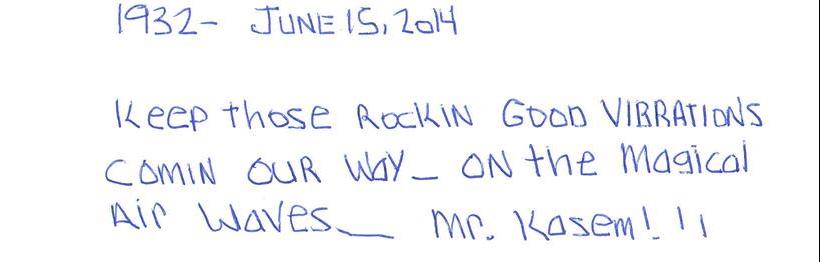 1932- JUNE 15, 2014
Keep those Rockin GOOD VIBRATIONS
COMIN OUR WAY_ ON the Magical
Air Waves__ Mr. Kasem! !!